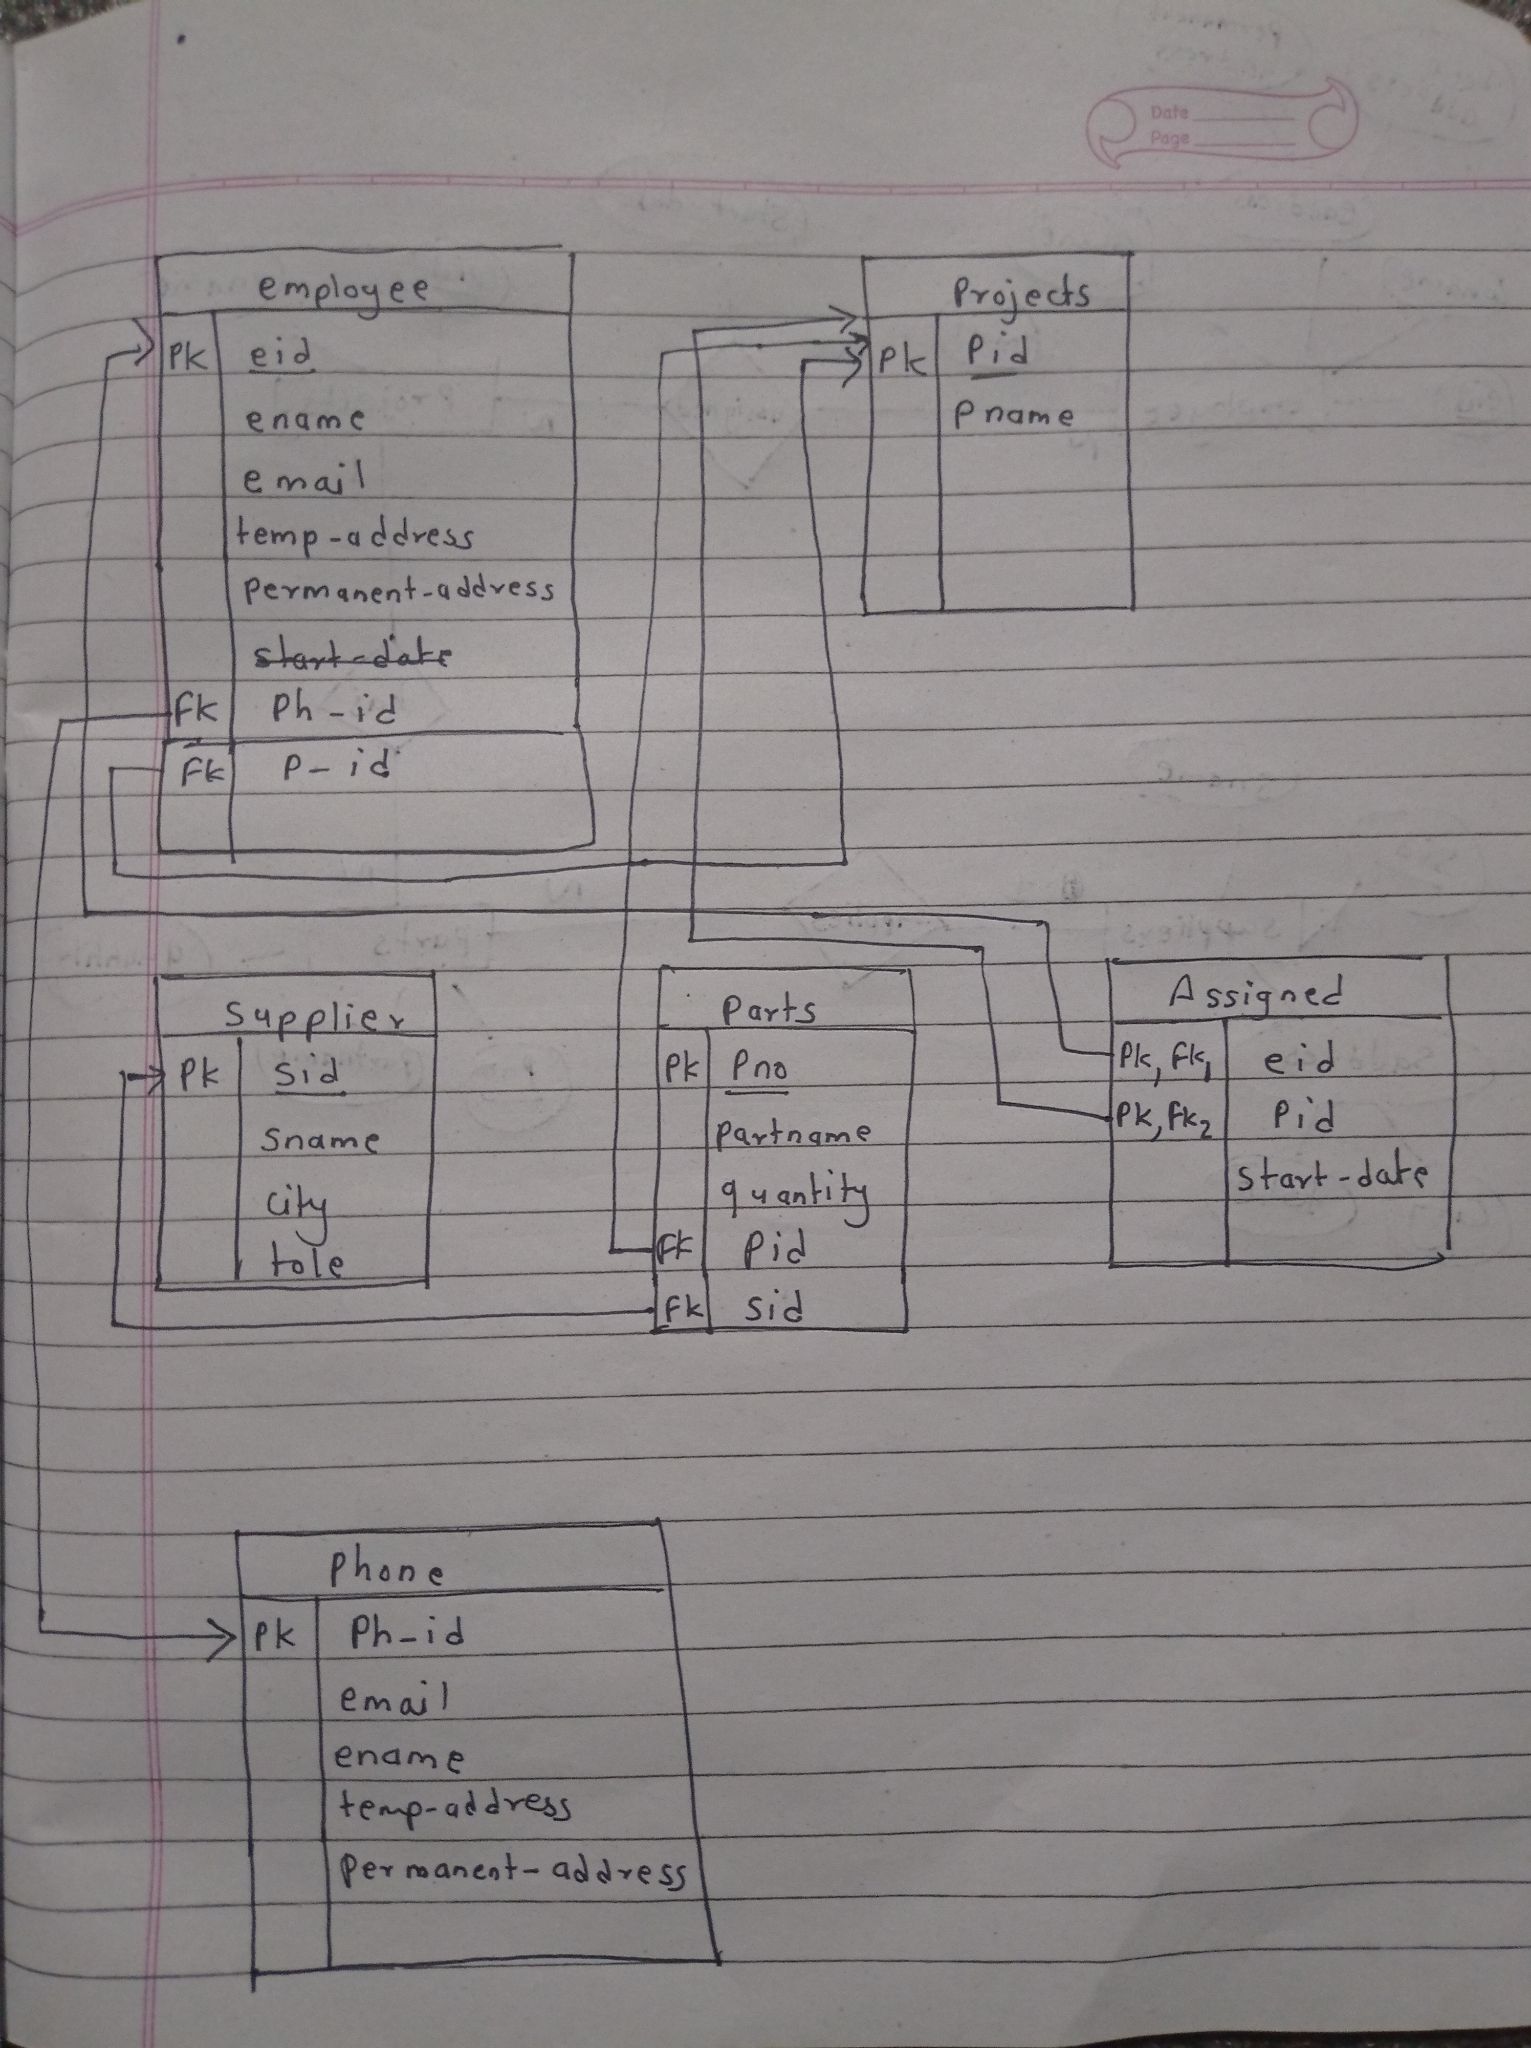 Date
Page
employee
Pk eid
ename
email
temp-address
permanent-address
start-date
Fk Ph-id
Fk P-id
Projects
Pk Pid
Pname
Supplier
Pk Sid
Sname
City
tole
Parts
Pk Pno
Partname
quantity
Fk Pid
Fk Sid
Assigned
Pk, Fk1 eid
Pk, Fk2 Pid
Start-date
Phone
Pk Ph-id
email
ename
temp-address
Permanent-address